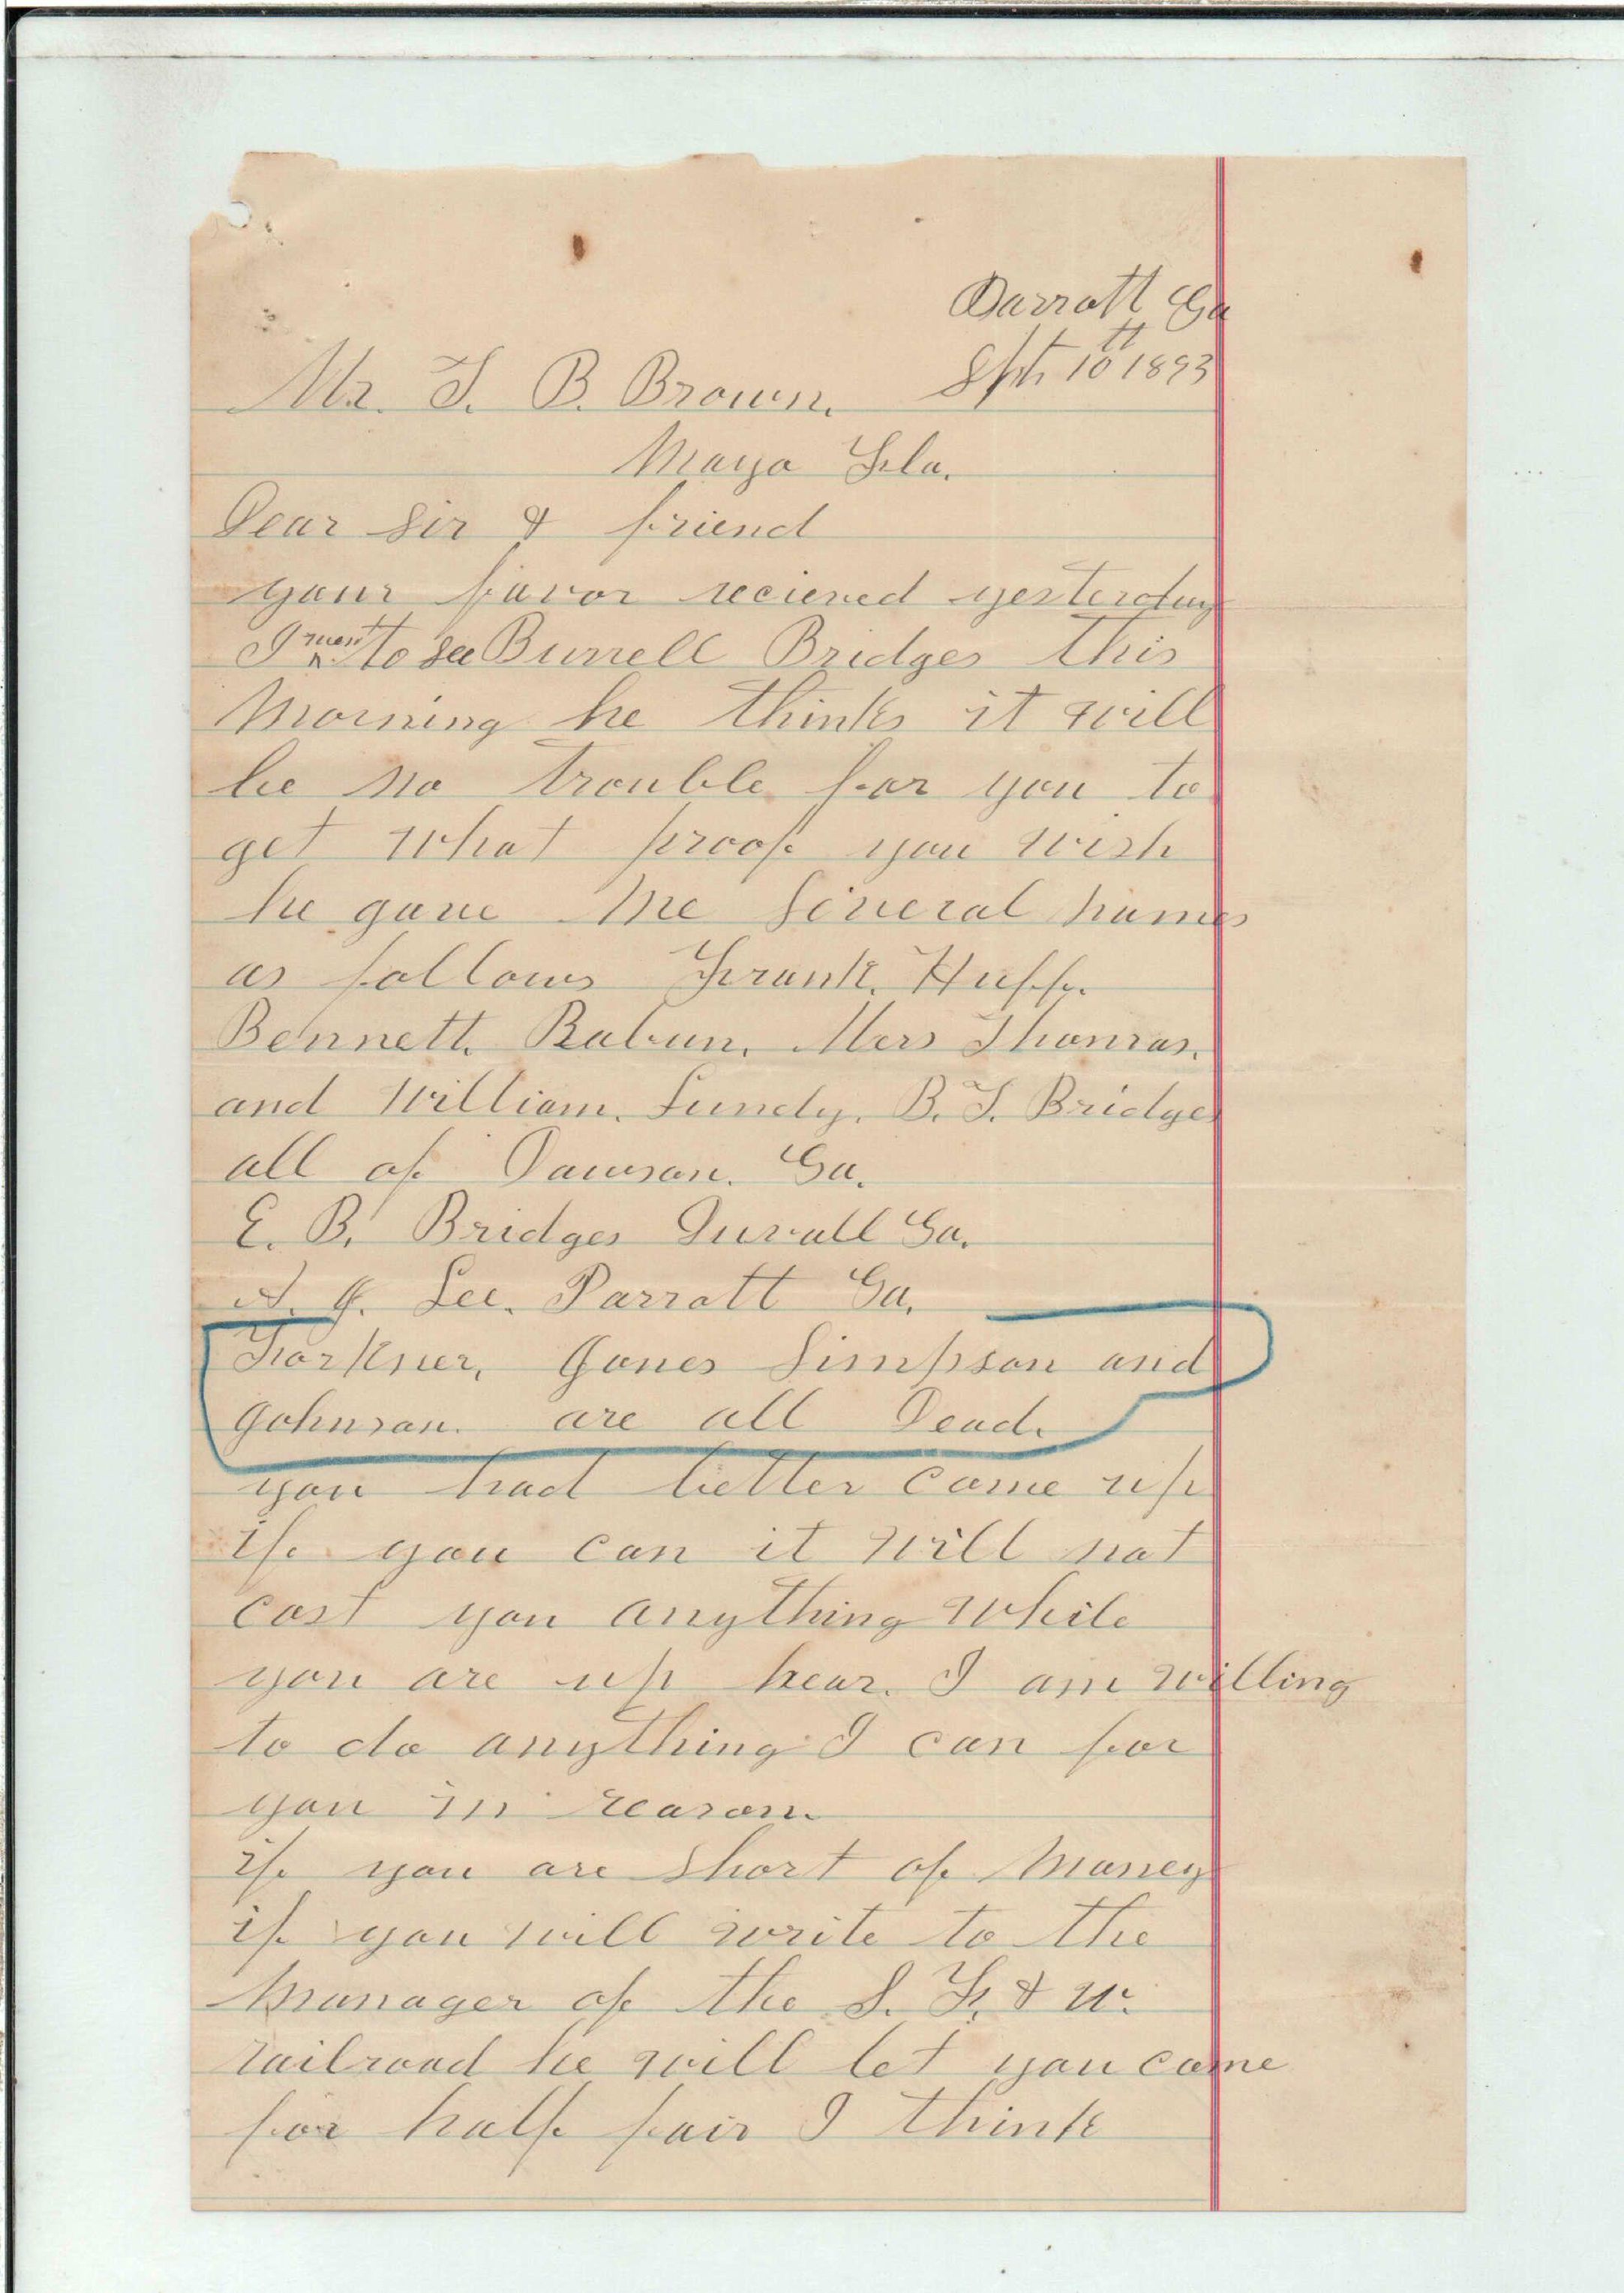 Parrott Ga
Sept 10th 1893
Mr. T. B. Brown.
Mayo Fla.
Dear Sir & friend
your favor recieved yesterday
I went to see Burrell Bridges this
Morning he thinks it will
be no trouble for you to
get what proof you wish
he gave me several names
as follows Frank. Huff.
Bennett. Rabun. Mers Thomas.
and William. Lundy. B. T. Bridges
all of Dawson. Ga.
E. B. Bridges Duvall Ga.
A. J. Lee. Parrott Ga.
Forkner. Jones Simpson and
Johnson. are all Dead.
you had better come up
if you can it will not
cost you anything while
you are up hear. I am willing
to do anything I can for
you in reason.
if you are short of Money
if you will write to the
Manager of the S. F. & W.
railroad he will let you come
for half fair I think